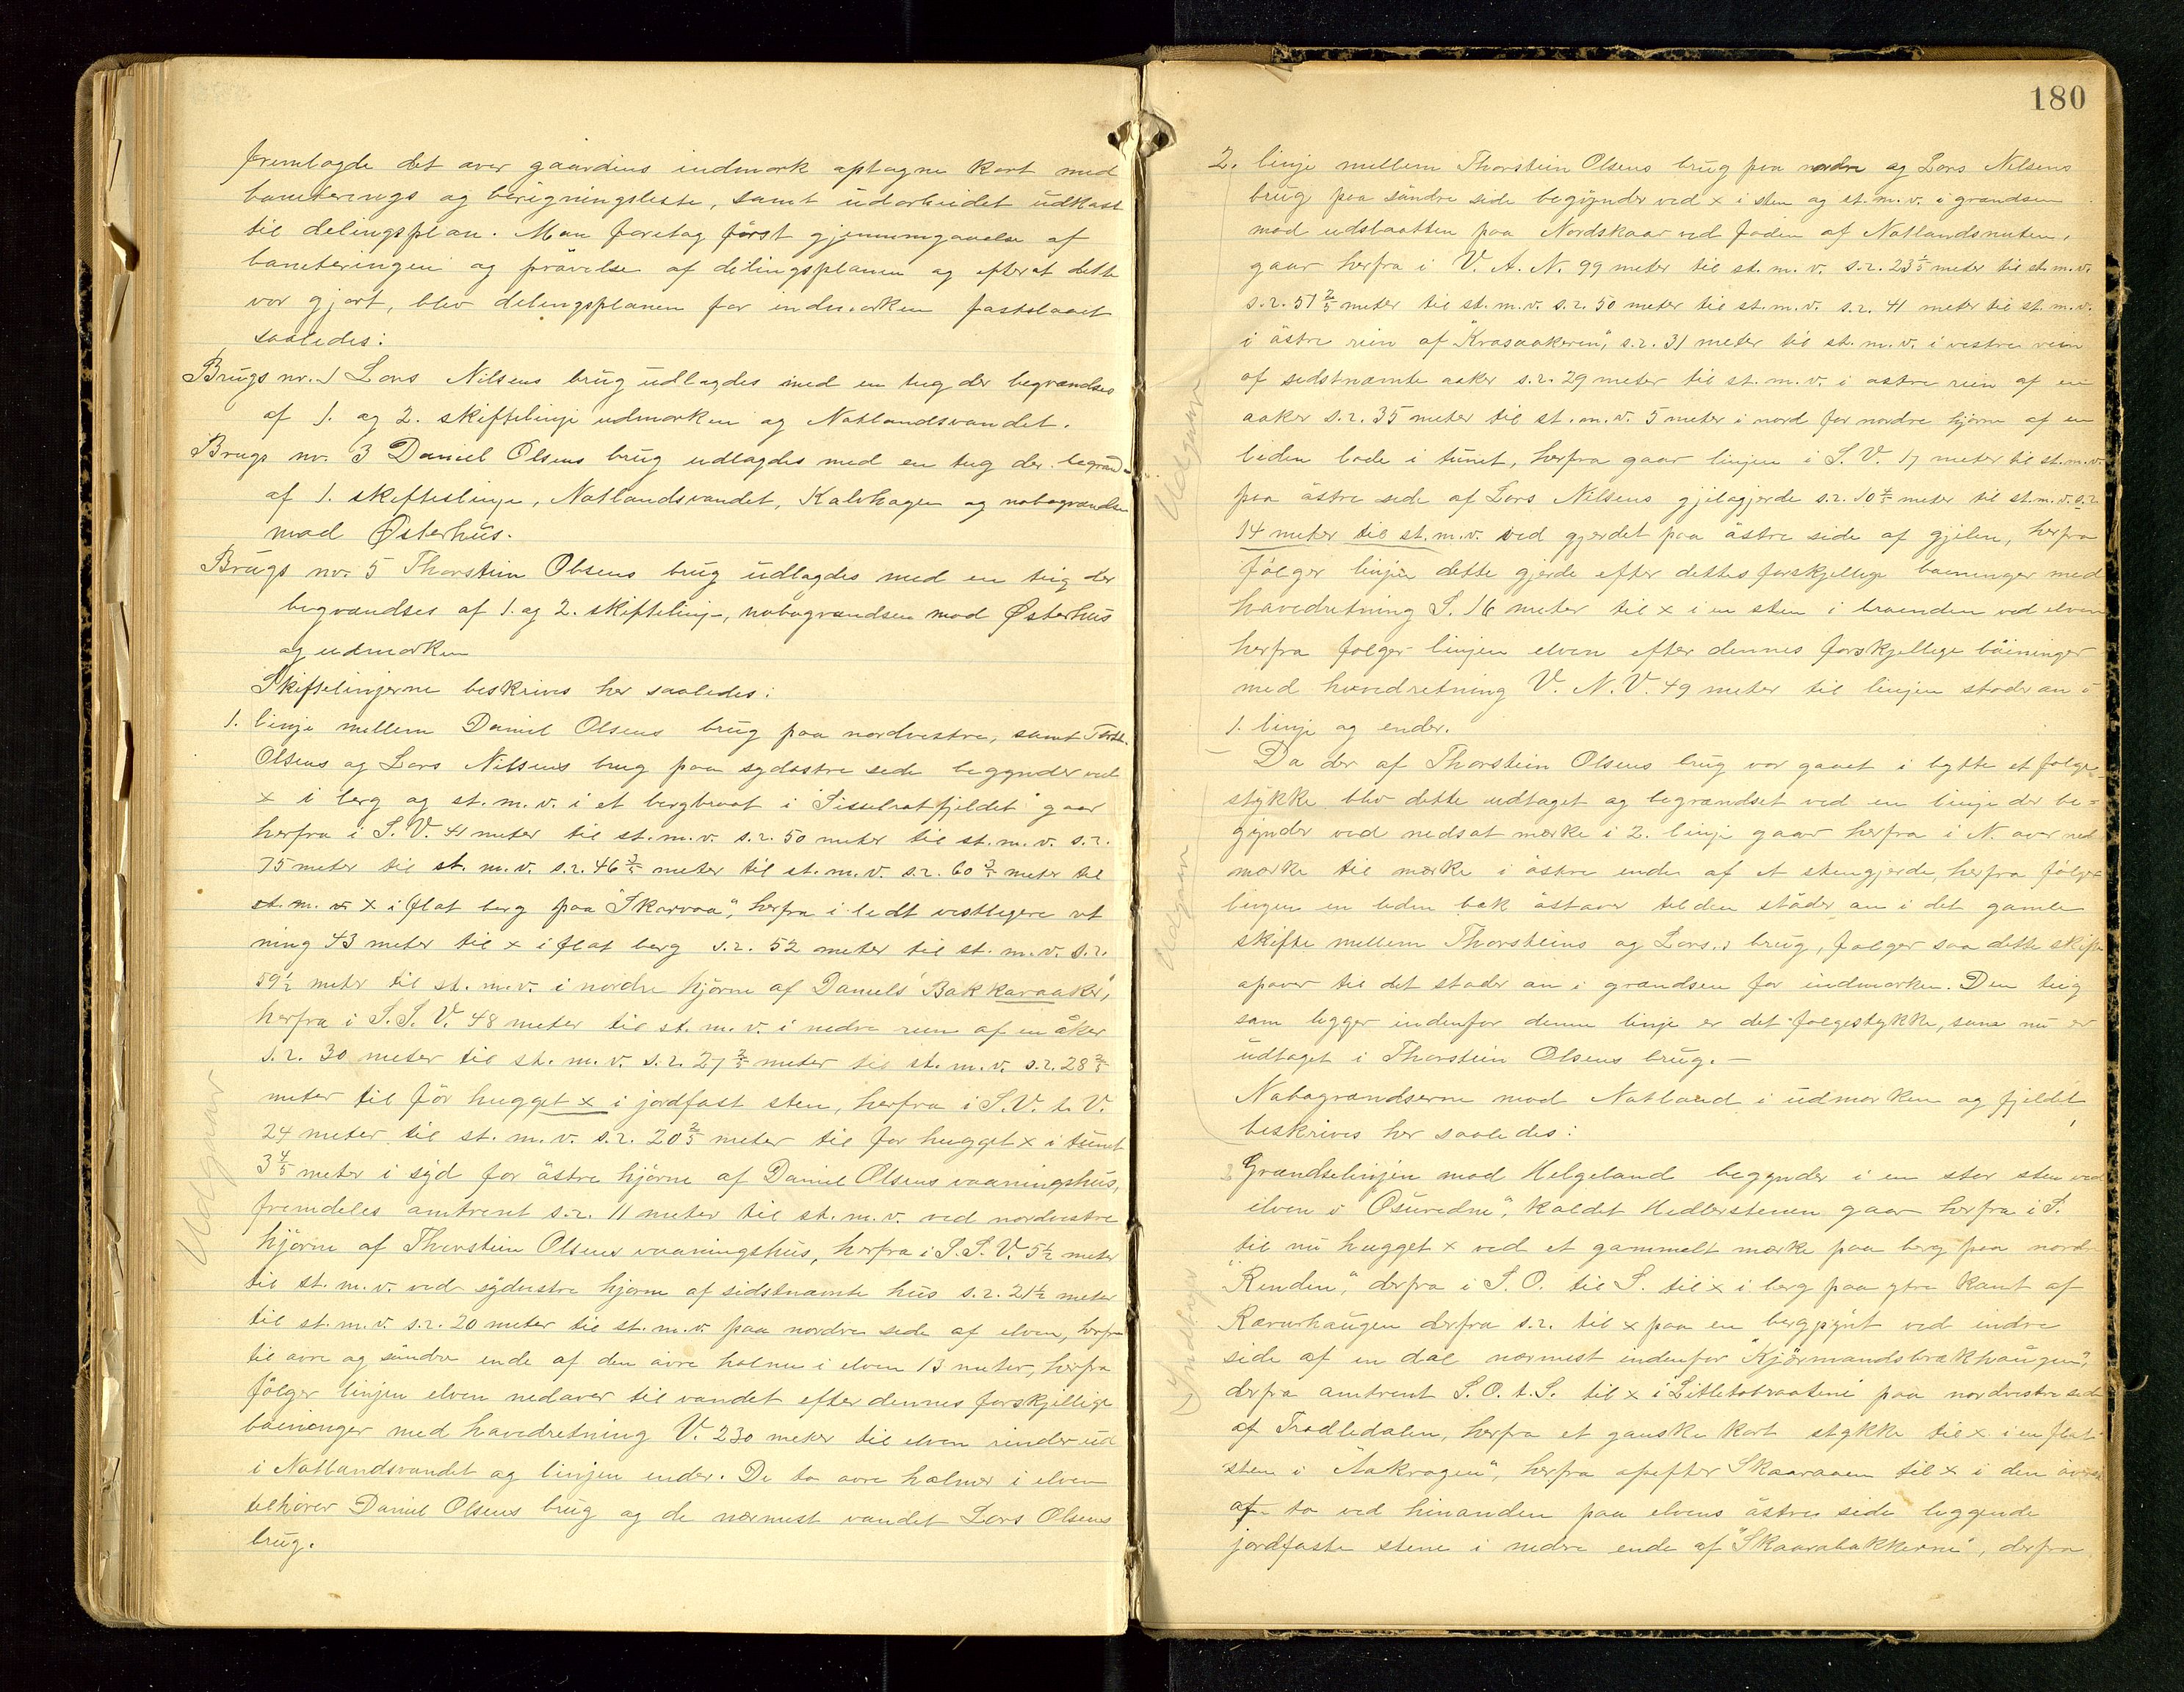 fremlagde det over gaardens indmark optagne kart med
boniterings og beregningsliste, samt udarbeidet udkast
til delingsplan. Man foretog först gjennemgaaelse af
boniteringen og prövelse af delingsplanen og efterat dette
var gjort, blev delingsplanen for indmarken fastslaaet
saaledes:
Brugs nr. 1 Lars Nilsens brug udlagdes med en teig der begrændses
af 1. og 2. skiftelinje udmarken og Natlandsvandet.
Brugs nr. 3 Daniel Olsens brug udlagdes med en teig der begrænd-
af 1. skifteslinje, Natlandsvandet, Kalvhagen og nabogrændsen
mod Østerhus.
Brugs nr. 5 Thorstein Olsens brug udlagdes med en teig der
begrændses af 1. og 2. skiftelinje, nabogrændsen mod Østerhus
og udmarken
Skiftelinjerne beskrives her saaledes:
1. linje mellem Daniel Olsens brug paa nordvestre, samt Torst.
Olsens og Lars Nilsens brug paa sydöstre side begynder ved
x i berg og st. m. v. i et bergbraat i "Sisselratfjeldet" gaar
herfra i S. V. 41 meter til st. m. v. s. r. 50 meter til st. m. v. s. r.
75 meter til st. m. v. s. r. 46 2/5 meter til st. m. v. s. r. 60 2/5 meter til
st. m. v. x i flat berg paa "Skarvaa", herfra i lidt vestligere ret
ning 43 meter til x i flat berg s. r. 52 meter til st. m. v. s. r.
59 1/2 meter til st. m. v. i nordre hjörne af Daniels "Bakkaraaker",
herfra i S. S. V. 48 meter til st. m. v. i nedre rein af en åker
s. r. 30 meter til st. m. v. s. r. 27 2/5 meter til st. m. v. s. r. 28 2/5
meter til för hugget x i jordfast sten, herfra i S. V. t. V.
24 meter til st. m. v. s. r. 20 2/5 meter til för hugget x i tunet
3 4/5 meter i syd for östre hjörne af Daniel Olsens vaaningshus,
fremdeles omtrent s. r. 11 meter til st. m. v. ved nordvestre
hjörne af Thorstein Olsens vaaningshus, herfra i S. S. V. 5 1/2 meter
til st. m. v. ved sydvestre hjörne af sidstnævnte hus s. r. 21 1/2 meter
til st. m. v. s. r. 20 meter til st. m. v. paa nordre side af elven, herfra
til övre og söndre ende af den övre holme i elven 13 meter, herfra
fölger linjen elven nedover til vandet efter dennes forskjellige
böininger med hovedretning V. 230 meter til elven rinder ud
i Natlandsvandet og linjen ender. De to övre holmer i elven
tilhörer Daniel Olsens brug og de nærmest vandet Lars Olsens
brug.
Udgjaar
180
2. linje mellem Thorstein Olsens brug paa nordre og Lars Nilsens
brug paa söndre side begynder ved x i sten og st. m. v. i grændsen
mod udslaatten paa Nordskaar ved foden af Natlandsnuten,
gaar herfra i V. t. N. 99 meter til st. m. v. s. r. 23 2/5 meter til st. m. v.
s. r. 51 2/5 meter til st. m. v. s. r. 50 meter til st. m. v. s. r. 41 meter til st. m. v.
i östre rein af "Krosaakeren", s. r. 31 meter til st. m. v. i vestre rein
af sidstnævnte aaker s. r. 29 meter til st. m. v. i östre rein af en
aaker s. r. 35 meter til st. m. v. 5 meter i nord for nordre hjörne af en
liden lade i tunet, herfra gaar linjen i S. V. 17 meter til st. m. v.
paa östre side af Lars Nilsens gjilagjerde s. r. 10 4/5 meter til st. m. v. s. r.
14 meter til st. m. v. ved gjerdet paa östre side af gjilen, herfra
fölger linjen dette gjerde efter dettes forskjellige böininger med
hovedretning S. 16 meter til x i en sten i braenden ved elven
herfra fölger linjen elven efter dennes forskjellige böininger
med hovedretning V. N. V. 49 meter til linjen stöder an i
1. linje og ender.
Da der af Thorstein Olsens brug var gaaet i bytte et fölge-
stykke blev dette udtaget og begrændset ved en linje der be-
gynder ved nedsat mærke i 2. linje gaar herfra i N. over ned
mærke til mærke i östre ende af et stengjerde, herfra fölger
linjen en liden bæk östover til den stöder an i det gamle
skifte mellem Thorsteins og Lars's brug, fölger saa dette skifte
opover til det stöder an i grændsen for indmarken. Den teig
som ligger indenfor denne linje er det fölgestykke, som nu er
udtaget i Thorstein Olsens brug. —
Nabogrændserne mod Natland i udmarken og fjeldet
beskrives her saaledes:
Grændselinjen mod Helgeland begynder i en stor sten ved
elven i "Osuredne", kaldet Hedlerstenen gaar herfra i S.
til nu hugget x ved et gammelt mærke paa berg paa nordre
"Renden", derfra i S. O. til S. til x i berg paa ytre kant af
Rævurhaugen derfra s. r. til x paa en bergpynt ved indre
side af en dal nærmest indenfor "Kjörmandsbrækhaugen",
derfra omtrent S. O. t. S. til x i "Litletobraatene" paa nordvestre side
af Trodledalen, herfra et ganske kort stykke til x i en flat
sten i "Aakrogen", herfra opefter Skaaraaen til x i den överste
af to ved hinanden paa elvens östre side liggende
jordfaste stene i nedre ende af "Skaarabakkerne", derfra
Udgjaar
Udgaar
Indtages